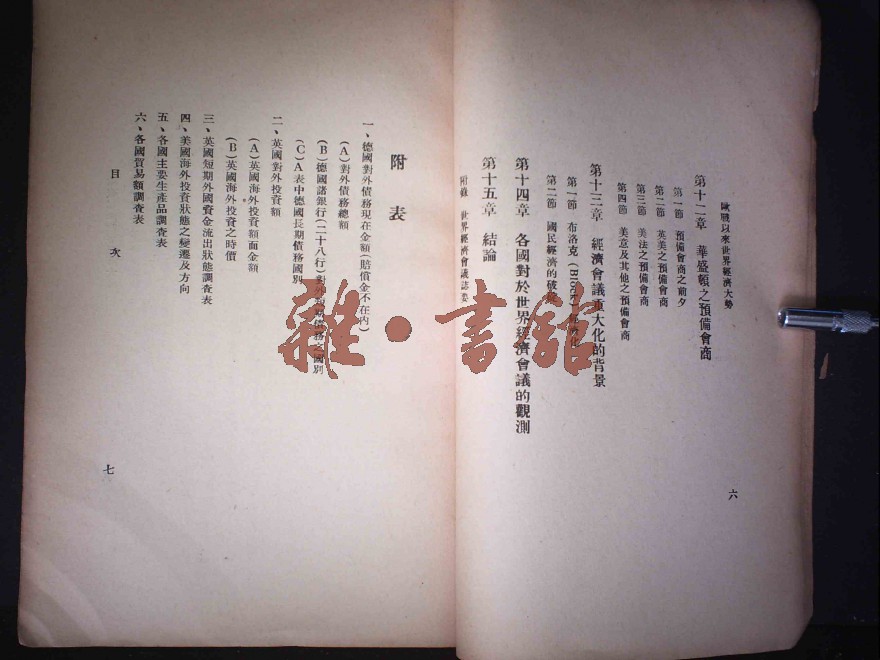 歐戰以來世界經濟大勢
第十二章 華盛頓之預備會商
第一節 預備會商之前夕
第二節 英美之預備會商
第三節 美法之預備會商
第四節 美意及其他之預備會商
第十三章 經濟會議重大化的背景
第一節 布洛克(Bloc)經濟化
第二節 國民經濟的破
第十四章 各國對於世界經濟會議的觀測
第十五章 結論
附錄 世界經濟會議誌要
六
附表
一、德國對外債務現在金額(賠償金不在內)
(A)對外債務總額
(B)德國諸銀行(二十八行)對外短期債務之國別
(C)A表中德國長期債務國別
二、英國對外投資額
(A)英國海外投資額面金額
(B)英國海外投資之時價
三、英國短期外國資金流出狀態調查表
四、美國海外投資狀態之變遷及方向
五、各國主要生產品調查表
六、各國貿易額調查表
目次
七
雜·書館